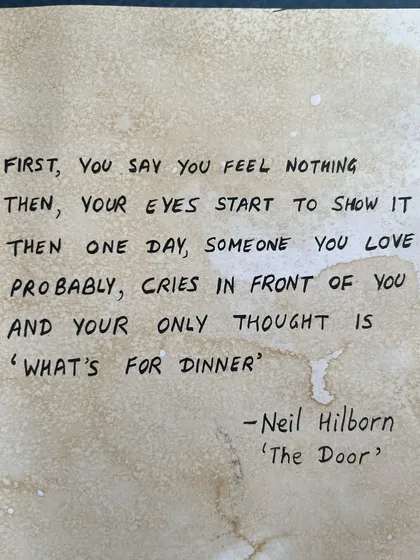 FIRST, YOU SAY YOU FEEL NOTHING
THEN, YOUR EYES START TO SHOW IT
THEN ONE DAY, SOMEONE YOU LOVE
PROBABLY, CRIES IN FRONT OF YOU
AND YOUR ONLY THOUGHT IS
'WHAT'S FOR DINNER'
-Neil Hilborn
'The Door'